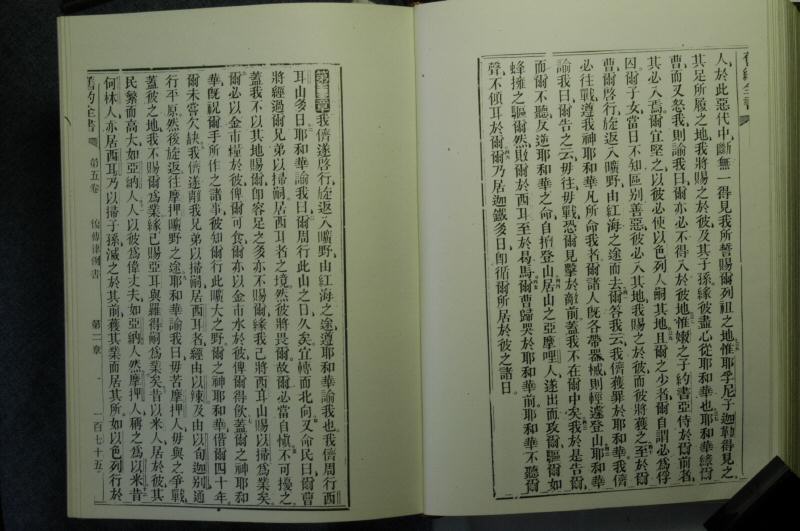 舊約全書
人於此惡代中斷無一得見我所誓賜爾列祖之地惟耶孚尼子迦勒得見之
其足所履之地我將賜之於彼及其子孫緣彼盡心從耶和華也耶和華緣爾
曹而又怒我則諭我曰爾亦必不得入於彼地惟嫩之子約書亞侍於爾前者
其必入焉爾宜堅之以彼必使以色列人嗣其地且爾之少者爾自謂必為俘
因爾子女當日不知區别善惡彼必入其地我賜之於彼而彼將獲之至於爾
曹爾啓行旋返入曠野由紅海之途而去爾答我云我儕獲罪於耶和華我儕
必往戰遵我神耶和華凡所命我者爾諸人既各帶器械則輕遽登山耶和華
諭我曰爾告之云毋往毋戰恐爾見擊於敵前蓋我不在爾中矣我於是告爾
而爾不聽反逆耶和華之命自擅登山居山之亞摩哩人遂出而攻爾驅爾如
蜂擁之驅爾然敗爾於西耳至於曷馬爾曹歸哭於耶和華前耶和華不聽爾
聲不傾耳於爾爾乃居迦鐵多日卽循爾所居於彼之諸日
第二章我儕遂啓行旋返入曠野由紅海之途遵耶和華諭我也我儕周行西
耳山多日耶和華諭我曰爾周行此山之日久矣宜轉而北向又命民曰爾曹
將經過爾兄弟以掃嗣居西耳者之境然彼將畏爾故爾必當自慎不可擾之
蓋我不以其地賜爾卽容足之多亦不賜爾緣我已將西耳山賜以掃爲業矣
爾必以金市糧於彼俾爾可食爾亦以金市水於彼俾爾得飲蓋爾之神耶和
華既祝爾手所作之諸事彼知爾行此曠大之野爾之神耶和華偕爾四十年
爾未嘗欠缺我儕遂離我兄弟以掃嗣居西耳者經由以辣及由以旬迦别通
行平原然後旋返往摩押曠野之途耶和華諭我曰毋苦摩押人毋與之爭戰
蓋彼之地我不賜爾爲業緣已賜亞耳與羅得嗣爲業矣昔以米人居於彼其
民繁而高大如亞納人人以彼爲偉丈夫如亞納人然摩押人稱之爲以米昔
何林人亦居西耳乃以掃子孫滅之於其前獲其業而居其所如以色列行於
舊約全書 第五卷 復傳律例書 第二章 一百七十五